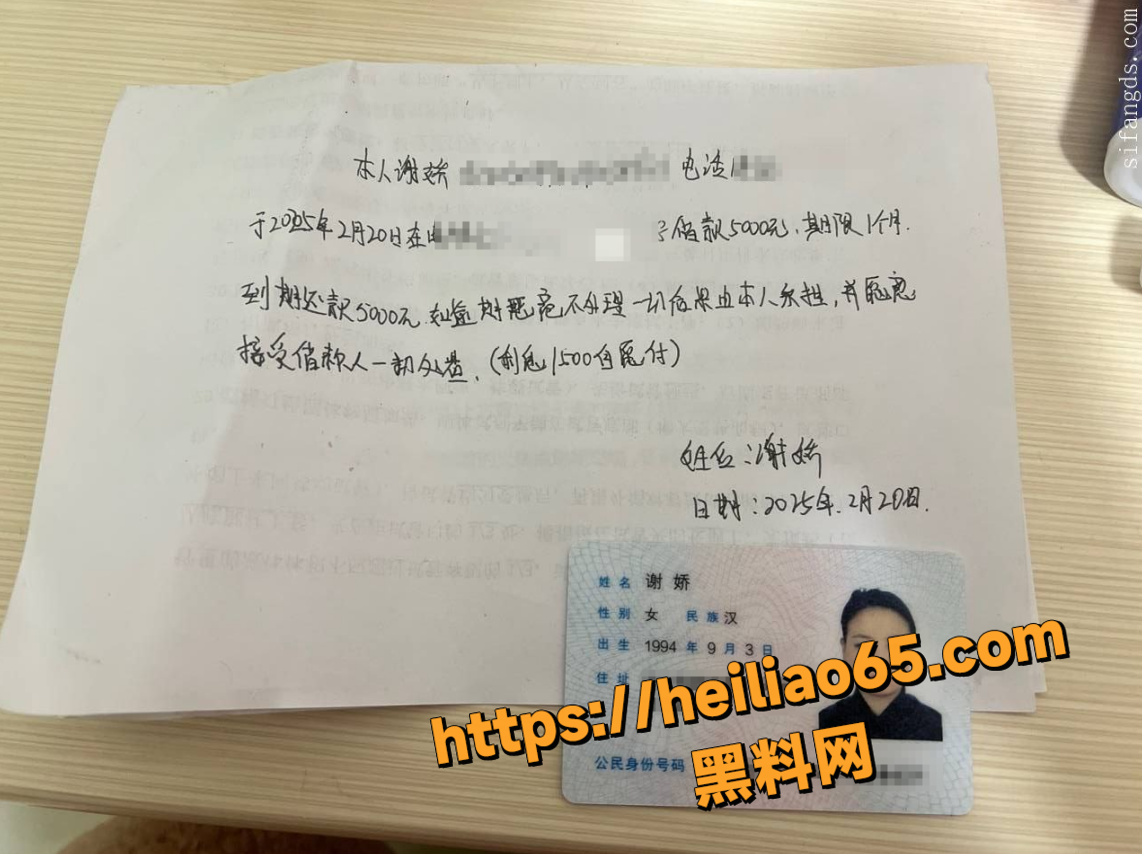 sifangds.com
本人谢娇 电话1
于2025年2月20日在 借款5000元,期限1个月.
到期还款5000元.如逾期恶意不处理一切后果由本人承担,并愿意
接受借款人一切处置.(利息1500自愿付)
姓名:谢娇
日期:2025年.2月20日.
姓名 谢娇
性别 女 民族 汉
出生 1994年9月3日
住址
https://heiliao65.com
公民身份号码
黑料网